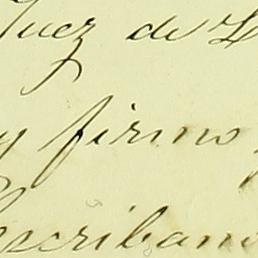 Juez de
y firmo
escribano